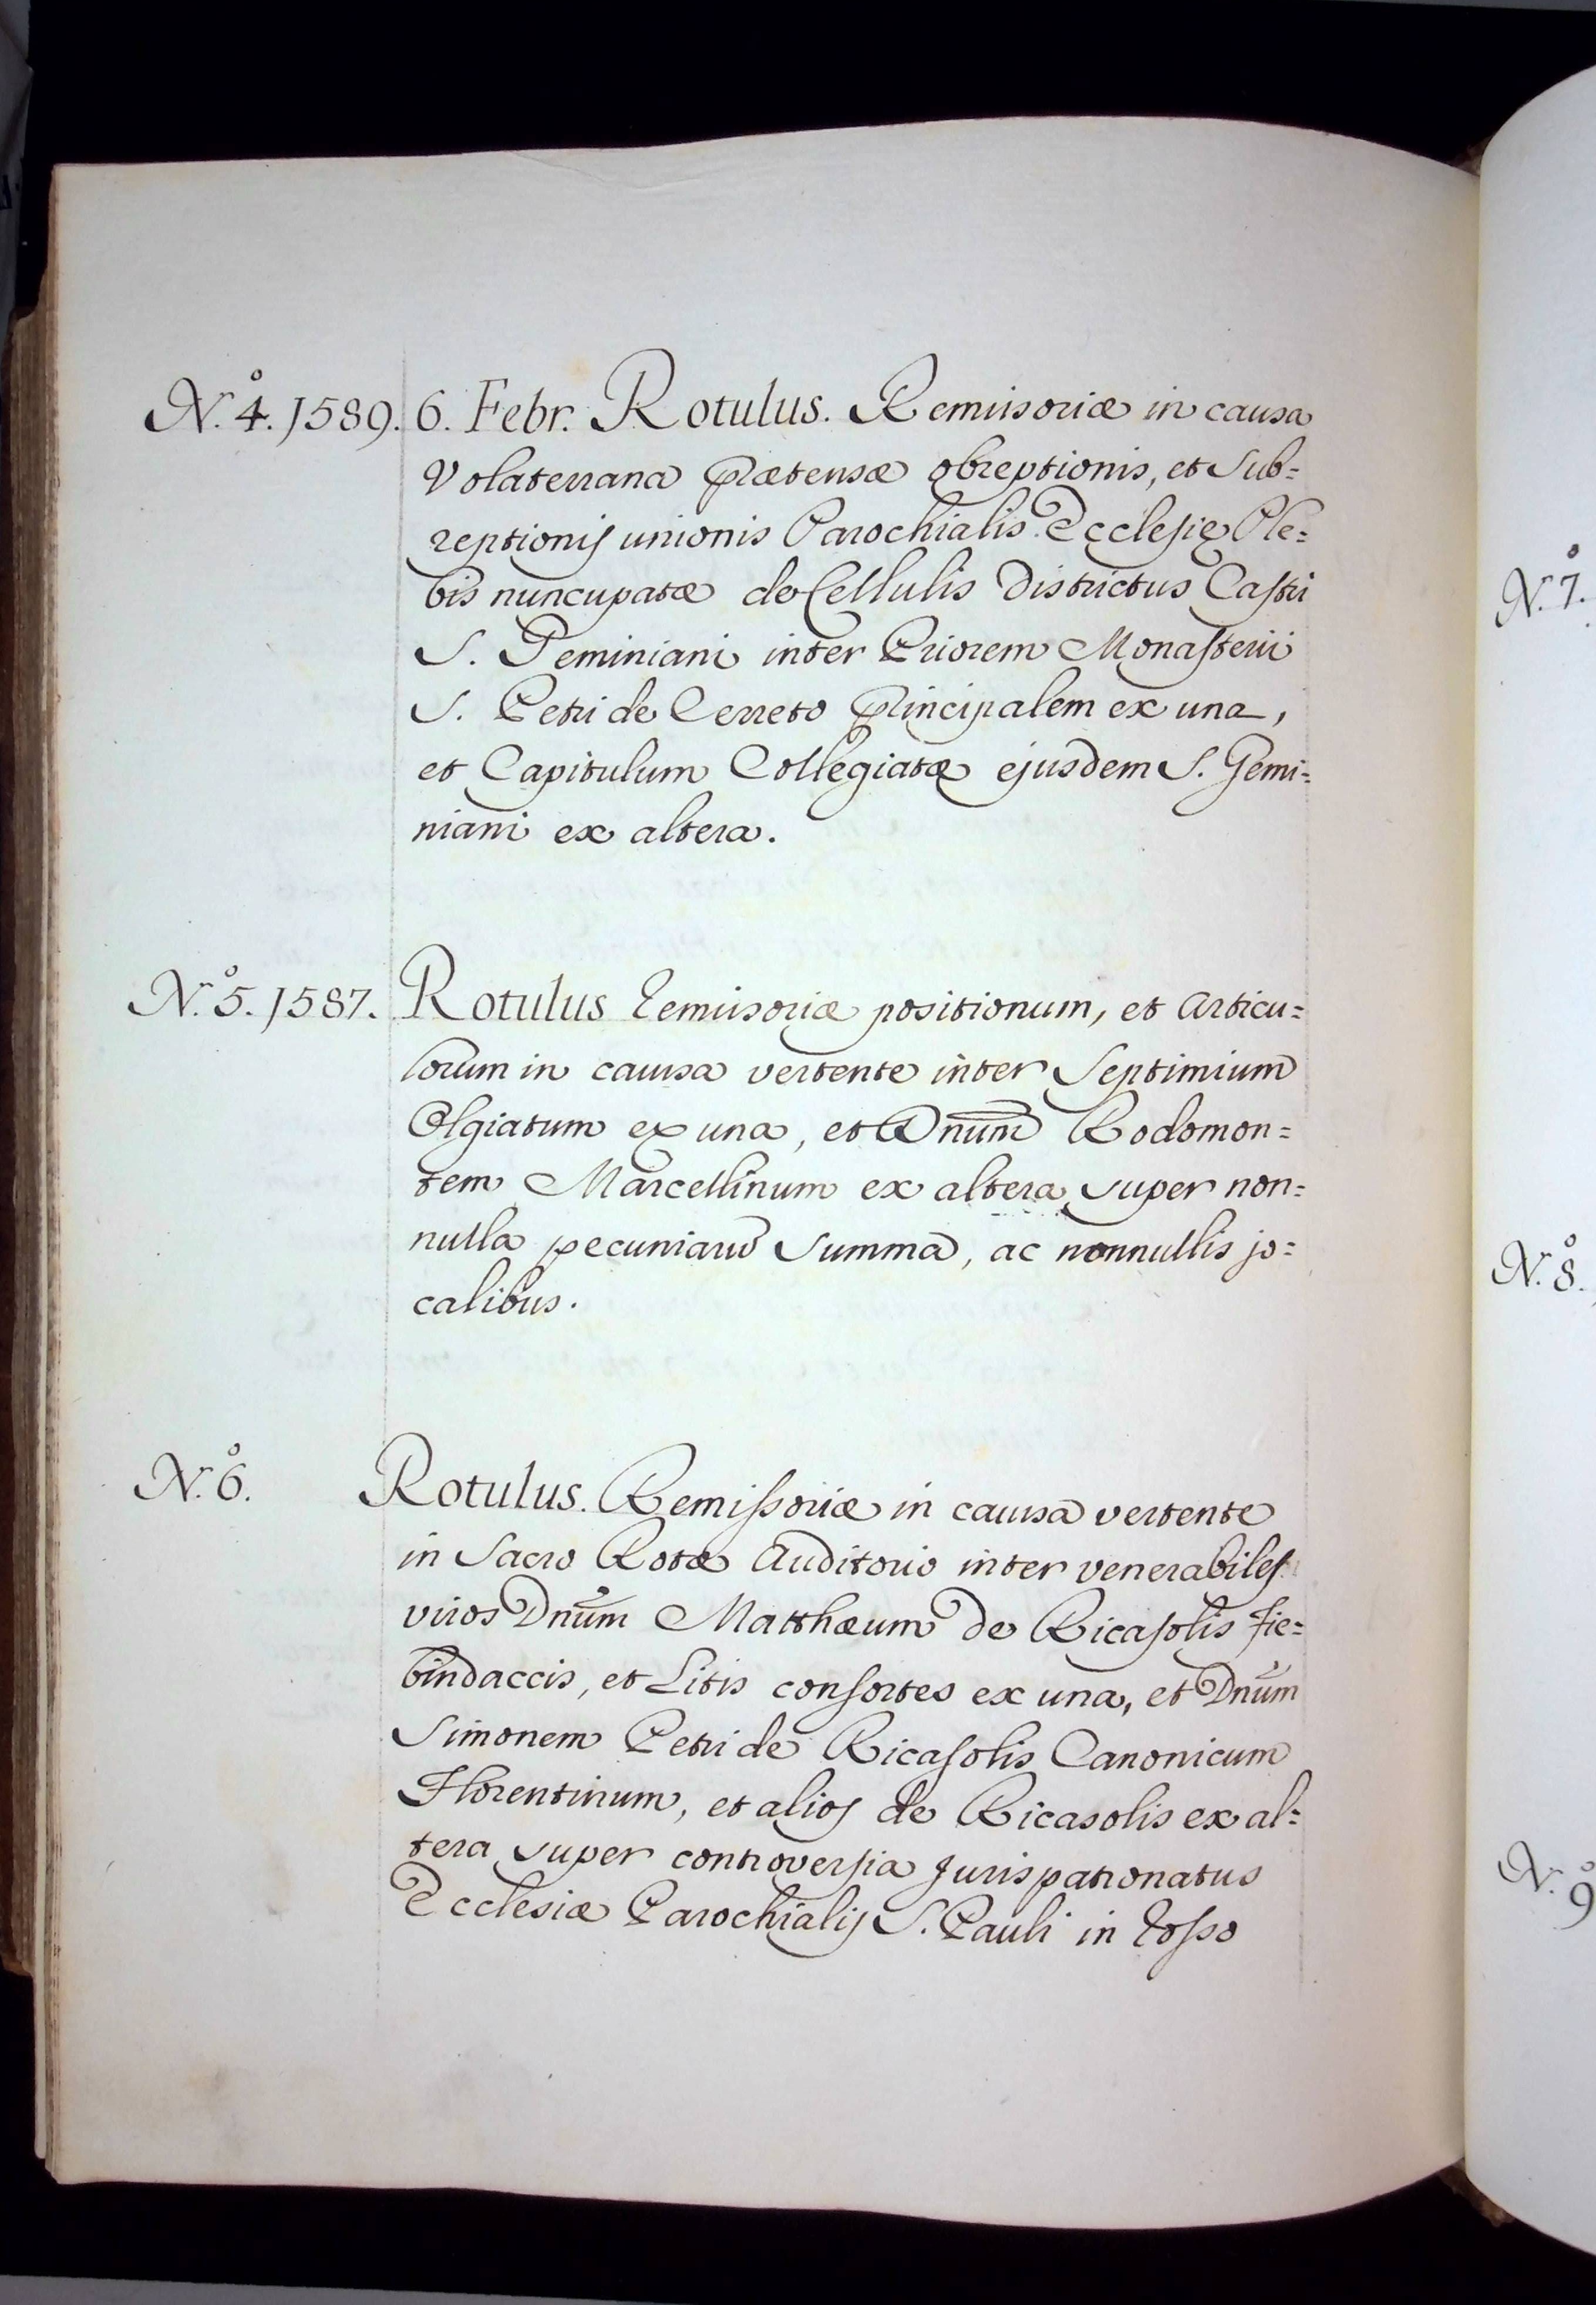 N.º 4. 1589. 6. Febr. Rotulus. Remissoriæ in causa
Volaterrana prætensæ obreptionis, et sub=
reptionis unionis Parochialis Ecclesię Ple=
bis nuncupatæ de Cellulis districtus Castri
S. Geminiani inter Priorem Monasterii
S. Petri de Cerreto principalem ex una,
et Capitulum Collegiatæ ejusdem S. Gemi=
niani ex altera.
N.º 5. 1587. Rotulus Remissoriæ positionum, et Articu=
lorum in causa vertente inter Septimium
Olgiatum ex una, et Dnum Rodomon=
tem Marcellinum ex altera super non=
nulla pecuniaru summa, ac nonnullis jo=
calibus.
N.º 6. Rotulus. Remissoriæ in causa vertente
in Sacro Rotæ Auditorio inter venerabiles
viros Dnum Matthæum de Ricasolis Fie=
bindaccis, et Litis consortes ex una, et Dnum
Simonem Petri de Ricasolis Canonicum
Florentinum, et alios de Ricasolis ex al=
tera super controversia Jurispatronatus
Ecclesiæ Parochialis S. Pauli in Rosso
N.º 7.
N.º 8.
N.º 9